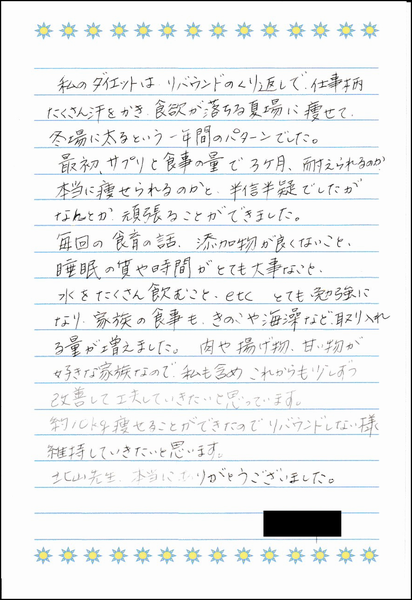 私のダイエットは、リバウンドのくり返しで、仕事柄
たくさん汗をかき、食欲が落ちる夏場に痩せて、
冬場に太るという一年間のパターンでした。
最初、サプリと食事の量で3ヶ月、耐えられるのか
本当に痩せられるのかと、半信半疑でしたが
なんとか頑張ることができました。
毎回の食育の話、添加物が良くないこと、
睡眠の質や時間がとても大事なこと、
水をたくさん飲むこと、etc とても勉強に
なり、家族の食事も、きのこや海藻など、取り入れ
る量が増えました。 肉や揚げ物、甘い物が
好きな家族なので、私も含め これからも少しずつ
改善して工夫していきたいと思っています。
約10kg痩せることができたのでリバウンドしない様
維持していきたいと思います。
北山先生、本当にありがとうございました。